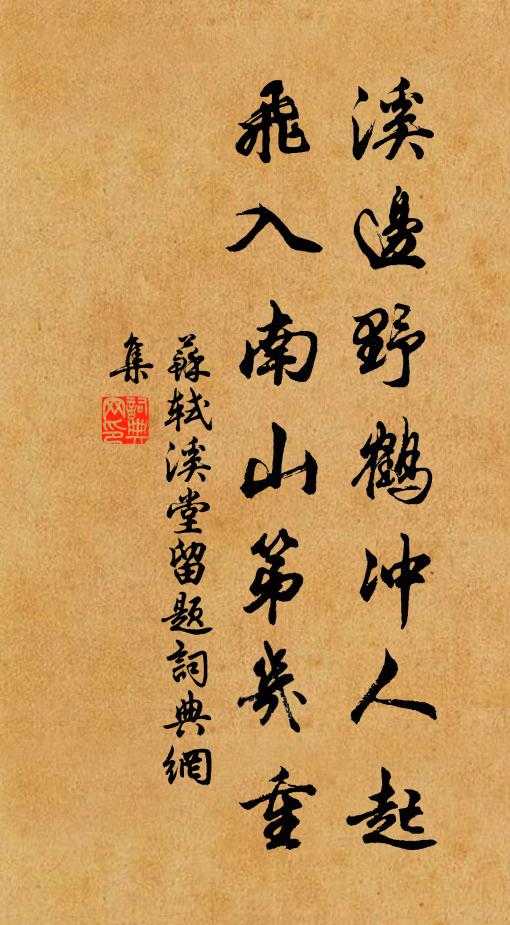 溪邊野鶴冲人起
飛入南山第幾重
蘇軾溪堂留題詞典網
集
詞典
網印